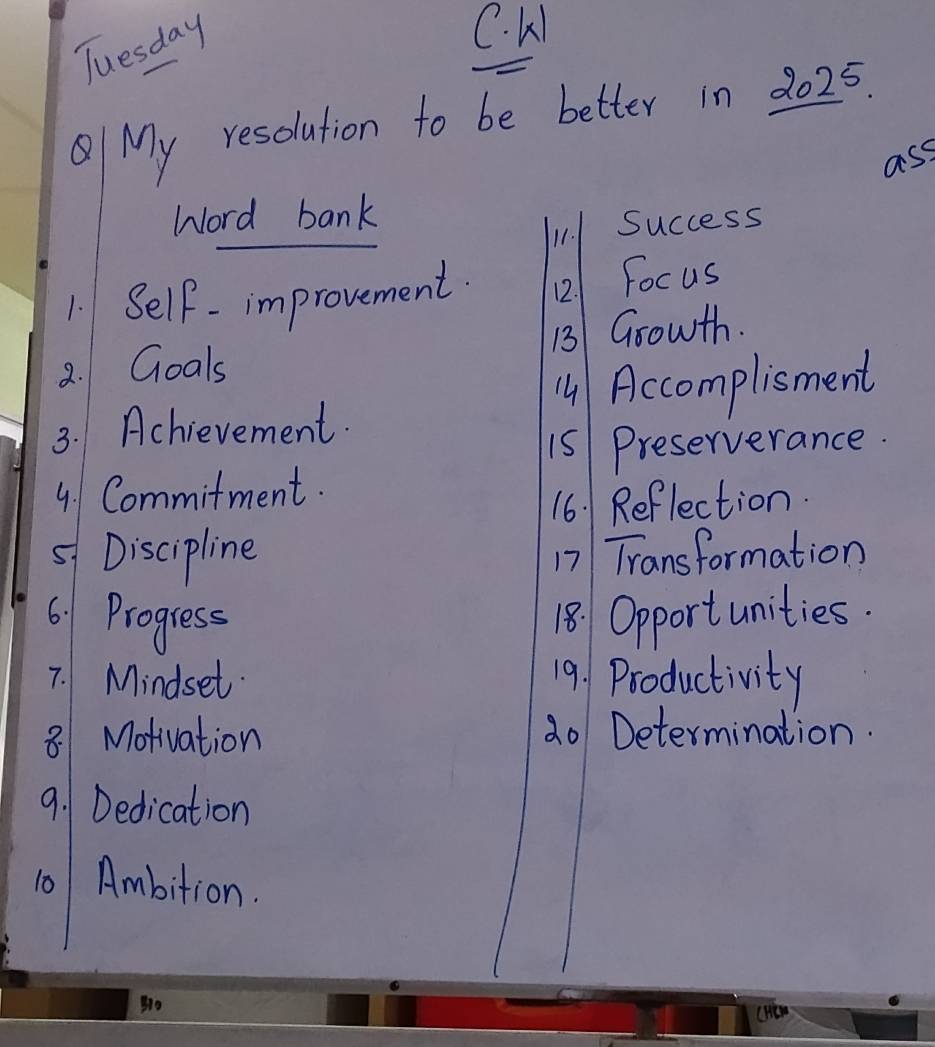 Tuesday
C.W
Q| My resolution to be better in 2025.
ass
Word bank
1. Self-improvement.
2. Goals
3. Achievement.
4. Commitment.
5. Discipline
6. Progress
7. Mindset.
8. Motivation
9. Dedication
10 Ambition.
11. Success
12. Focus
13 Growth.
14 Accomplisment
15 Preserverance.
16. Reflection.
17 Transformation
18. Opportunities.
19. Productivity
20 Determination.
BIO